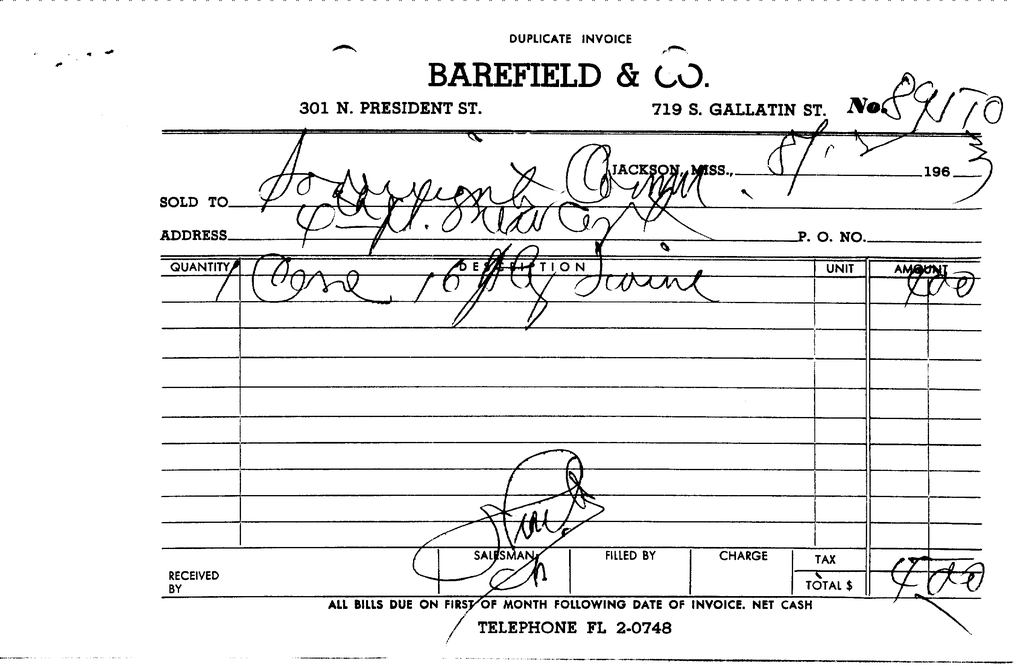 DUPLICATE INVOICE
BAREFIELD & CO.
301 N. PRESIDENT ST. 719 S. GALLATIN ST. No.
JACKSON, MISS., 8/ 196 3
SOLD TO Sovereignty Comm.
ADDRESS
P. O. NO.
QUANTITY DESCRIPTION UNIT AMOUNT
1 Case 16 Ply Twine 4 00
SALESMAN FILLED BY CHARGE TAX
RECEIVED BY TOTAL $ 4 00
ALL BILLS DUE ON FIRST OF MONTH FOLLOWING DATE OF INVOICE. NET CASH
TELEPHONE FL 2-0748